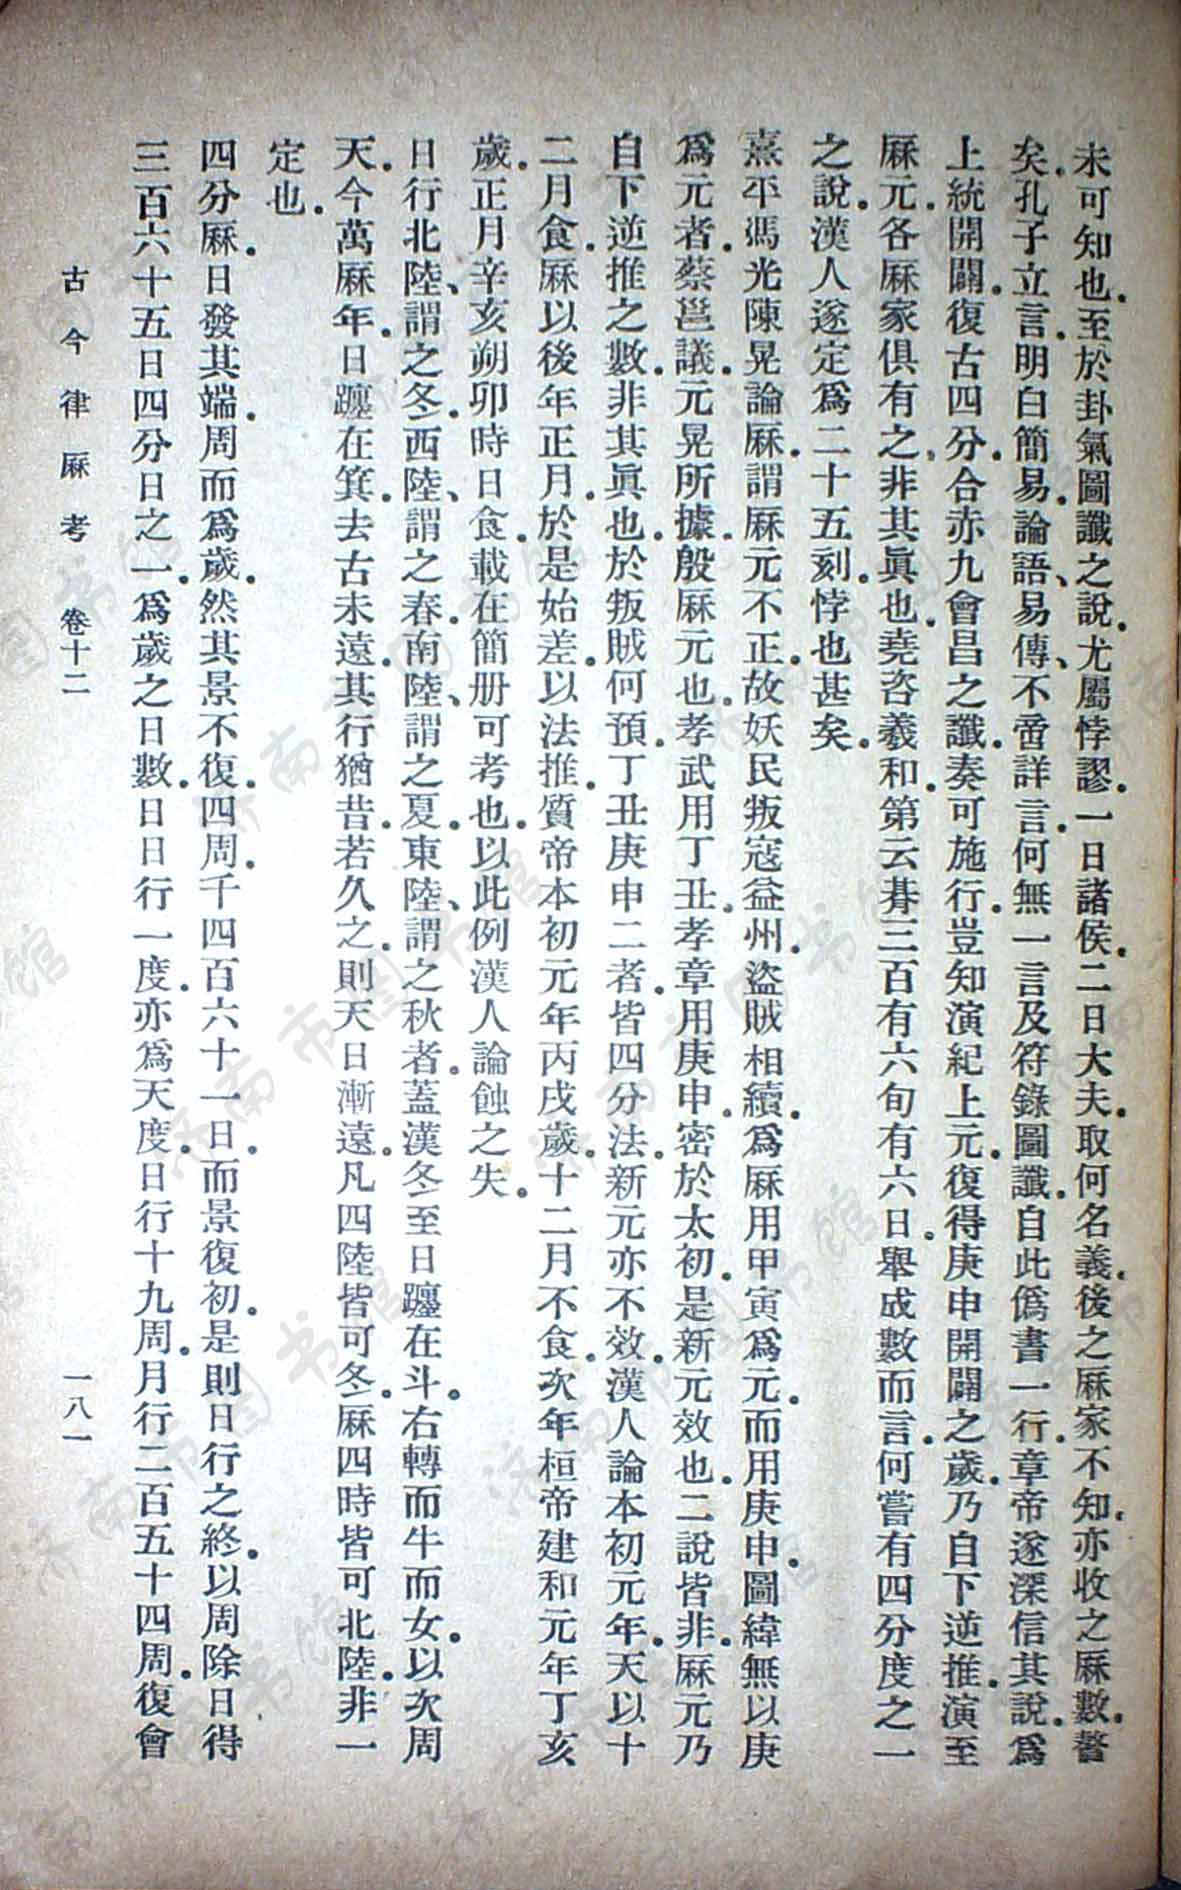 未可知也。至於卦氣圖讖之說。尤屬悖謬。一日諸侯。二日大夫。取何名義。後之厤家不知。亦收之厤數。瞀
矣。孔子立言。明白簡易。論語、易傳、不啻詳言。何無一言及符錄圖讖。自此僞書一行。章帝遂深信其說。爲
上統開闢。復古四分。合赤九會昌之讖。奏可施行。豈知演紀上元。復得庚申開闢之歲。乃自下逆推。演至
厤元。各厤家俱有之。非其眞也。堯咨羲和。第云朞三百有六旬有六日。舉成數而言。何嘗有四分度之一
之說。漢人遂定爲二十五刻。悖也甚矣。
熹平馮光陳晃論厤。謂厤元不正。故妖民叛寇益州。盜賊相續。爲厤用甲寅爲元。而用庚申。圖緯無以庚
爲元者。蔡邕議。元晃所據。殷厤元也。孝武用丁丑。孝章用庚申。密於太初。是新元效也。二說皆非。厤元乃
自下逆推之數。非其眞也。於叛賊何預。丁丑庚申二者。皆四分法。新元亦不效。漢人論本初元年。天以十
二月食。厤以後年正月。於是始差。以法推。質帝本初元年丙戌歲。十二月不食。次年桓帝建和元年丁亥
歲。正月辛亥朔卯時日食。載在簡册可考也。以此例漢人論蝕之失。
日行北陸、謂之冬。西陸、謂之春。南陸、謂之夏。東陸、謂之秋者。蓋漢冬至日躔在斗。右轉而牛而女。以次周
天。今萬厤年。日躔在箕。去古未遠。其行猶昔。若久之。則天日漸遠。凡四陸皆可冬。厤四時皆可北陸。非一
定也。
四分厤。日發其端。周而爲歲。然其景不復。四周。千四百六十一日。而景復初。是則日行之終。以周除日得
三百六十五日四分日之一。爲歲之日數。日日行一度。亦爲天度。日行十九周。月行二百五十四周。復會
古今律厤考 卷十二 一八一